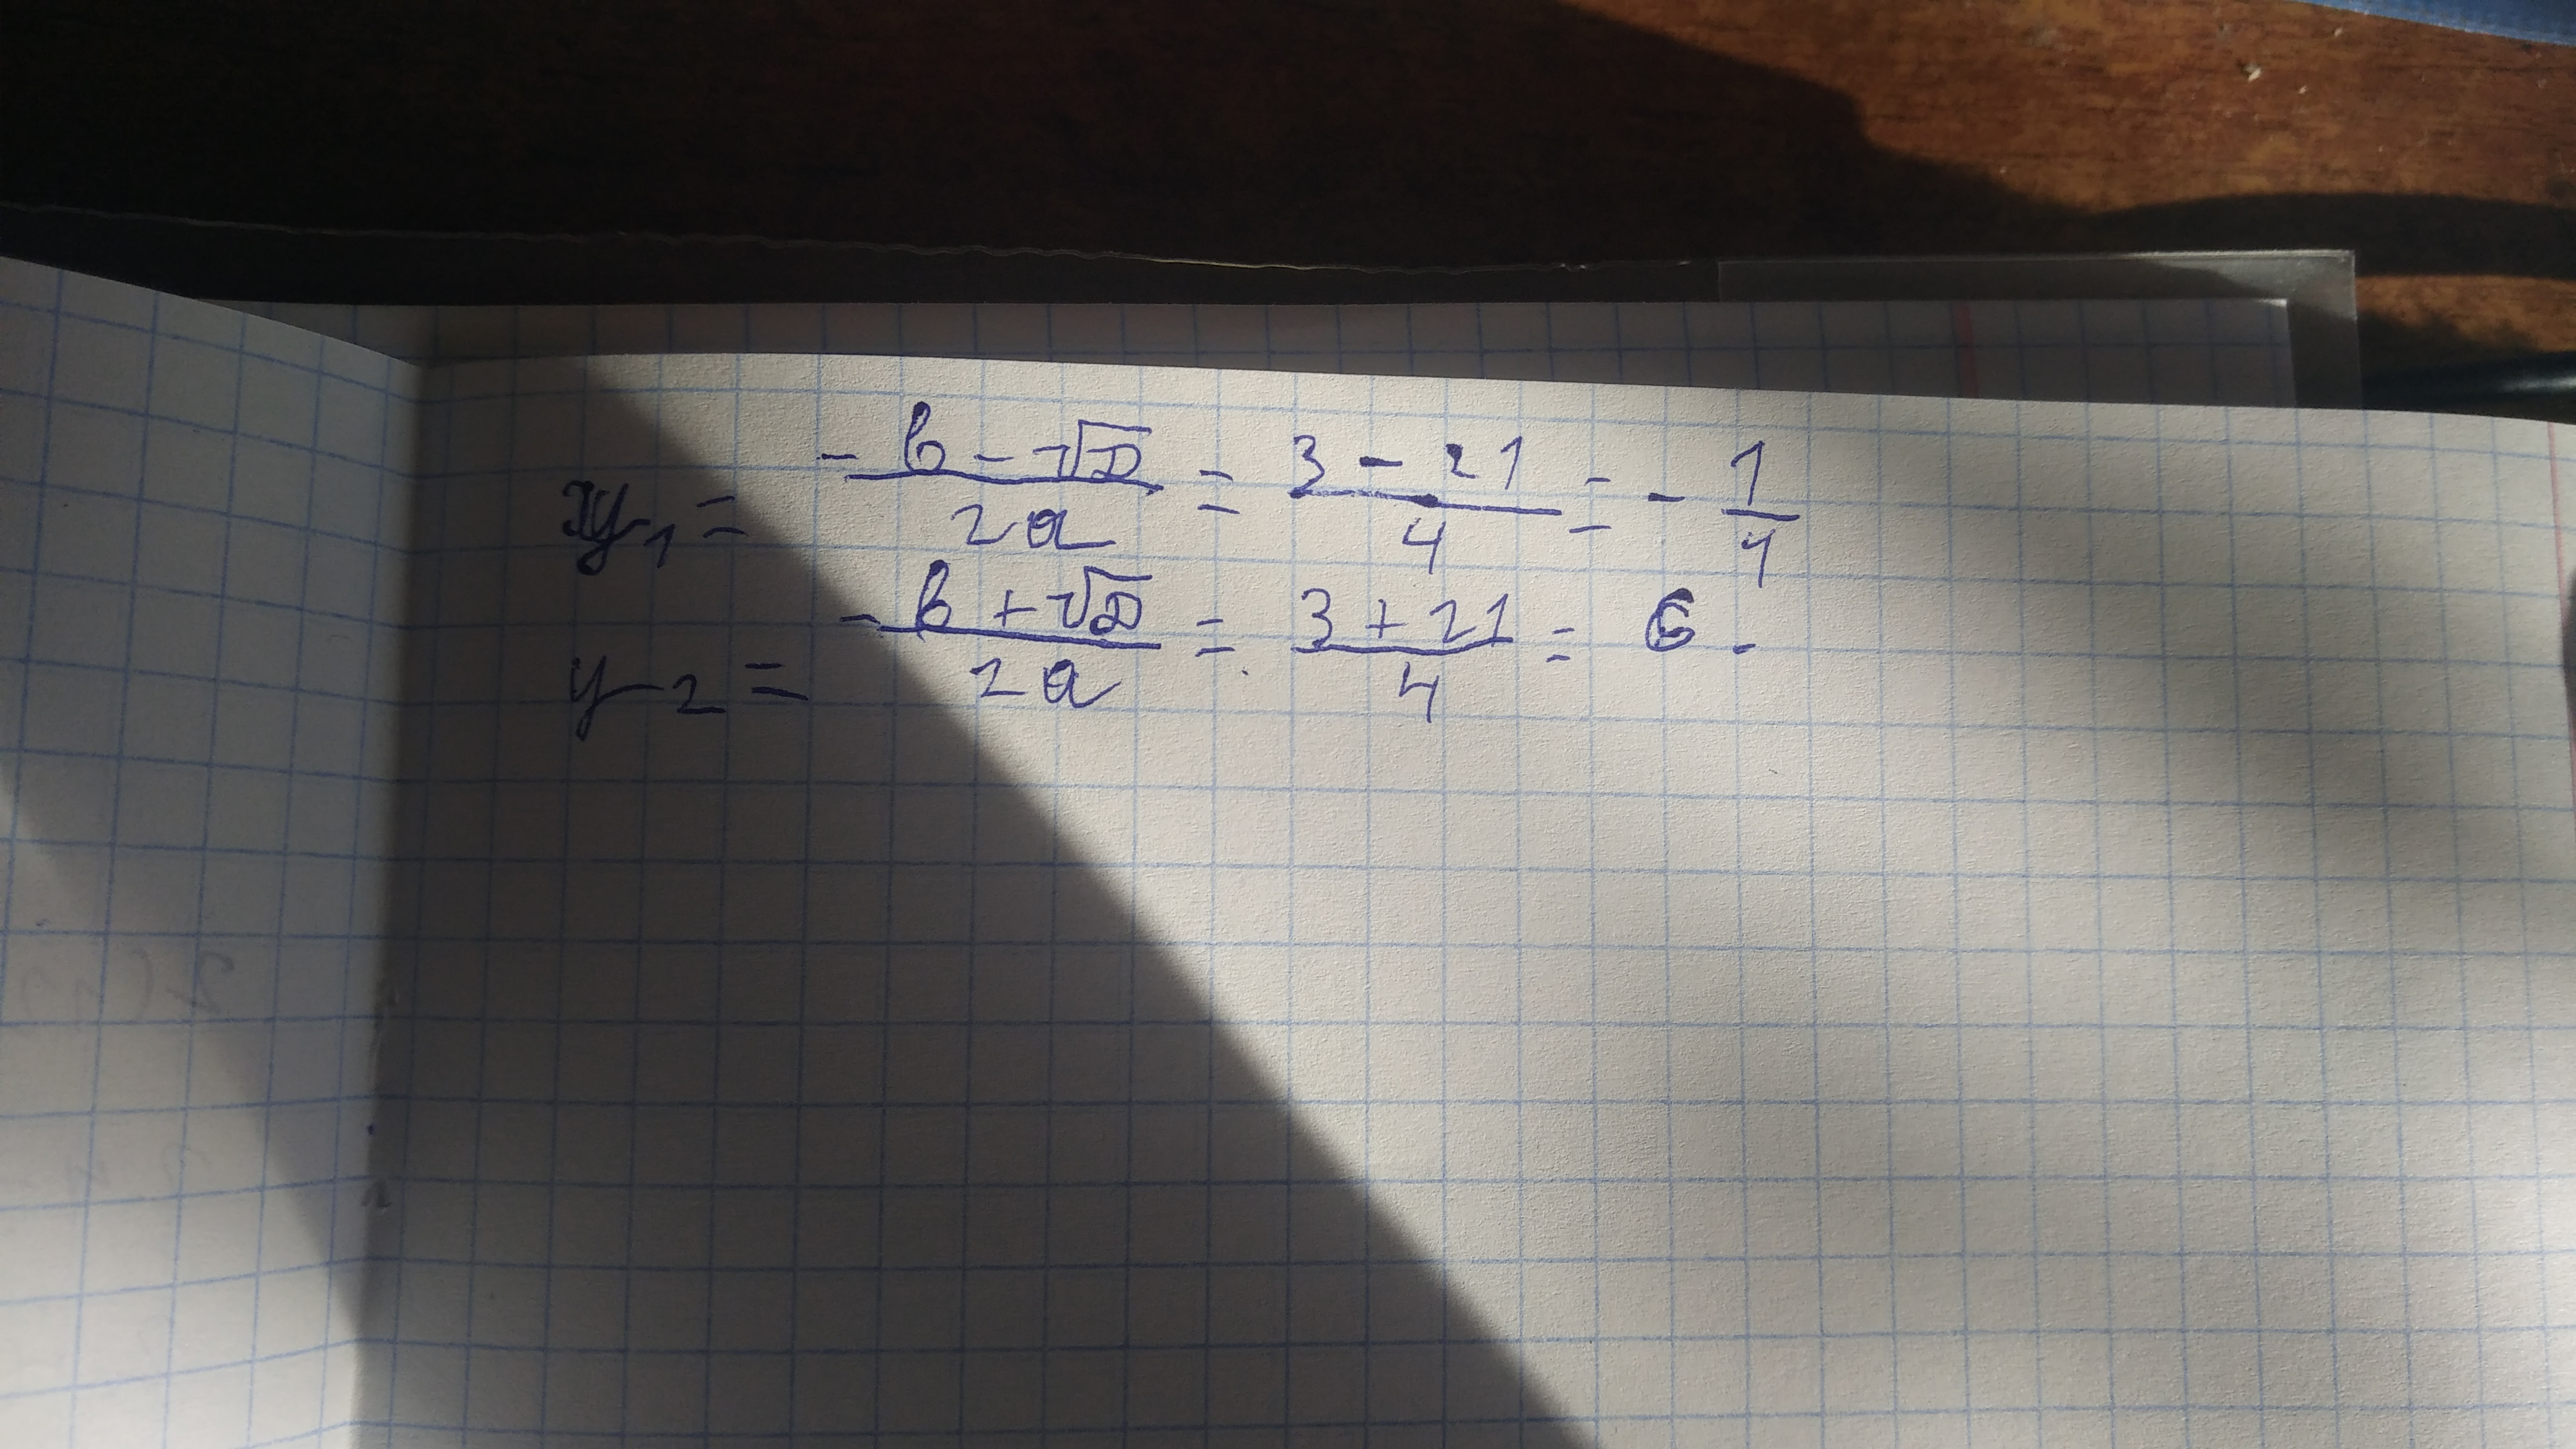 y₁ = (-b - √D)/(2a) = (3 - 21)/4 = -1/4
y₂ = (-b + √D)/(2a) = (3 + 21)/4 = 6.